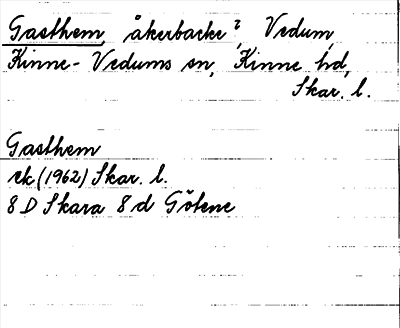 Gasthem, åkerbacke?, Vedum,
Kinne-Vedums sn, Kinne hd,
Skar. l.
Gasthem
ek (1962) Skar. l.
8 D Skara 8 d Götene